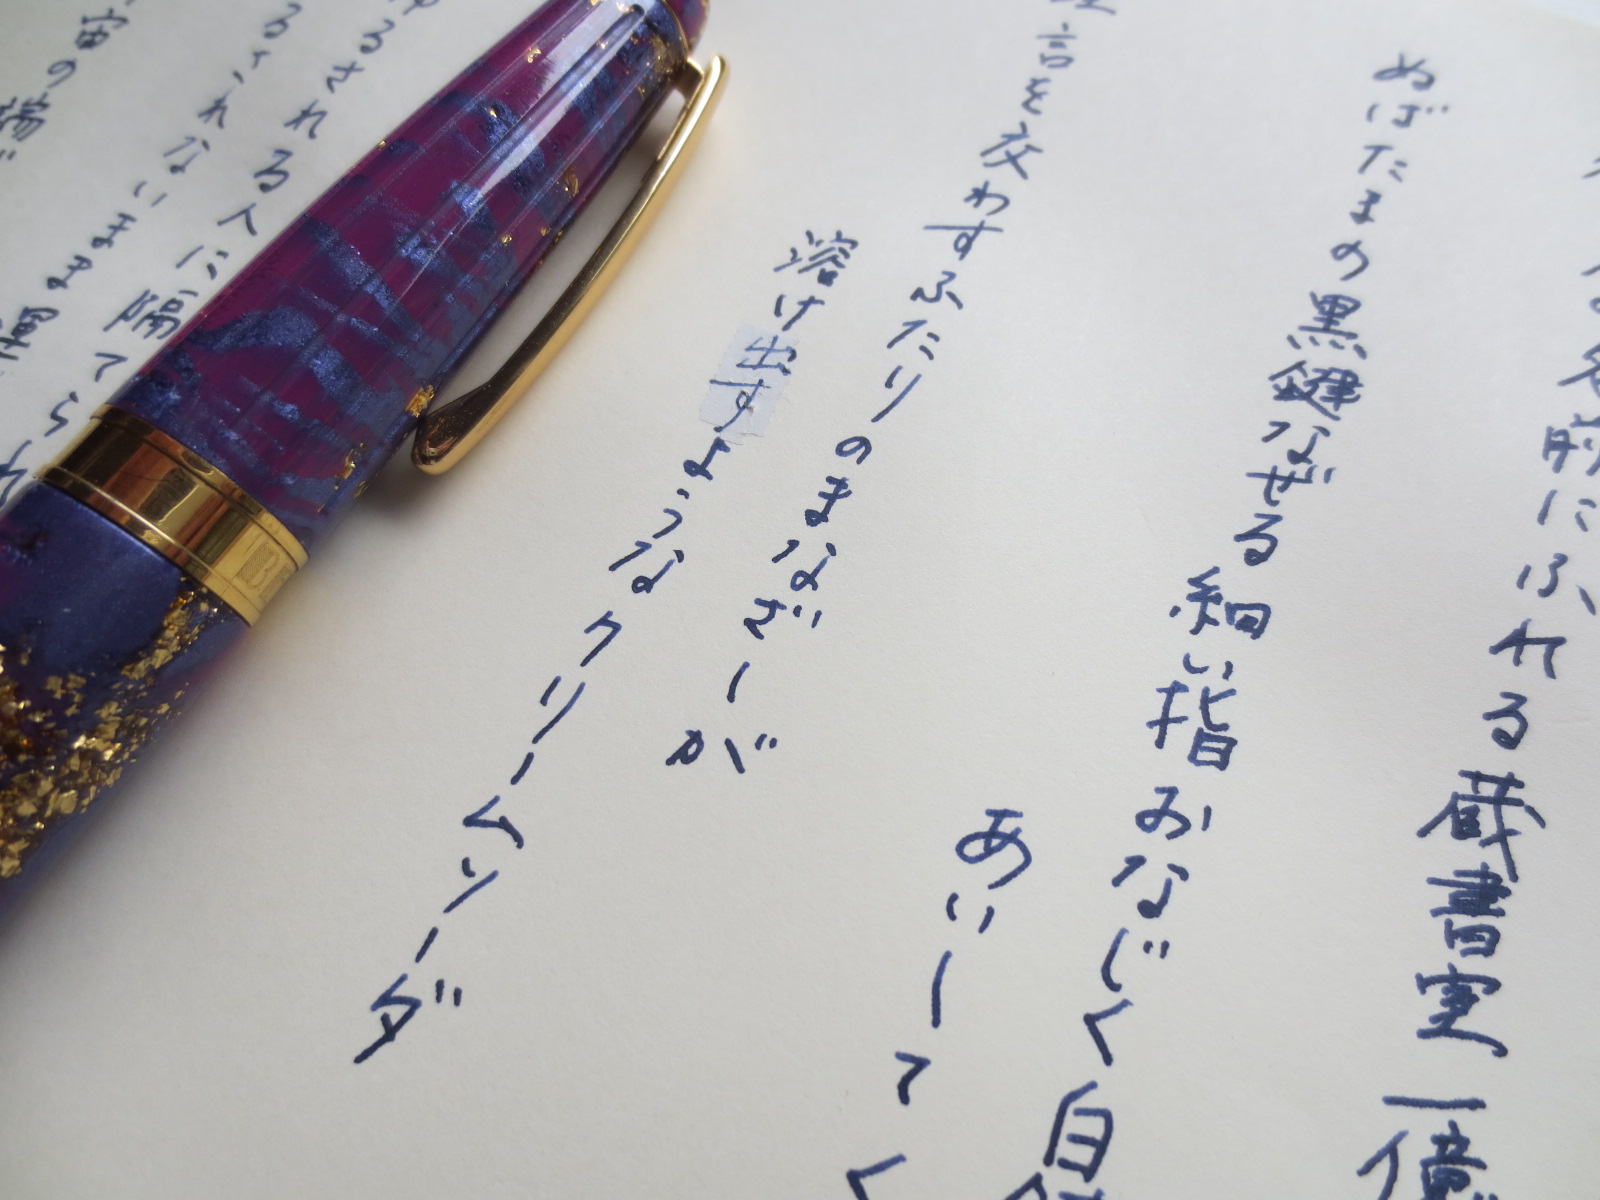 前にふれる蔵書室一億
ぬばたまの黒鍵なぜる細い指おなじく白
あいしてく
言を交わすふたりのまなざしが
溶け出すようなクリームソーダ
るされる人に隔てられ
るされないまま
宙の端が